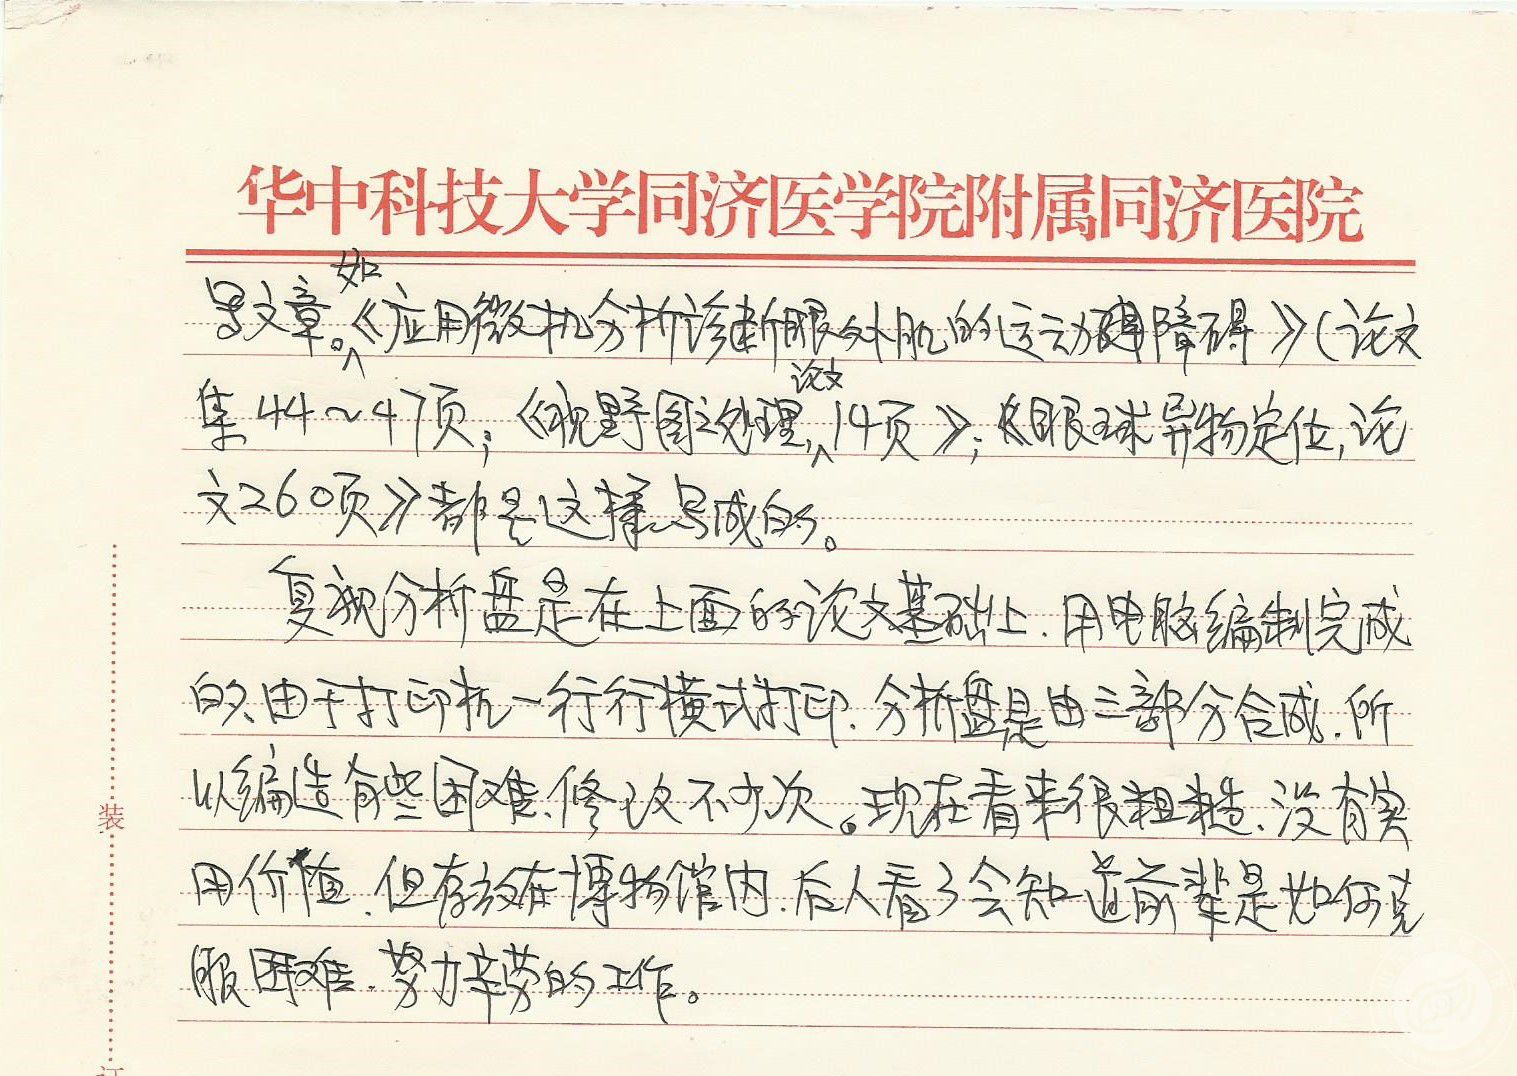 华中科技大学同济医学院附属同济医院
写文章。如《应用微机分析诊断眼外肌的运动障碍》(论文
集44~47页;《视野图之处理,论文14页》;《眼球异物定位,论
文260页》都是这样写成的。
复视分析盘是在上面的论文基础上.用电脑编制完成
的、由于打印机一行行横式打印.分析盘是由三部分合成.所
以编造有些困难、修改不少次。现在看来很粗糙、没有实
用价值.但存放在博物馆内.后人看了会知道前辈是如何克
服困难.努力辛劳的工作。
装
订